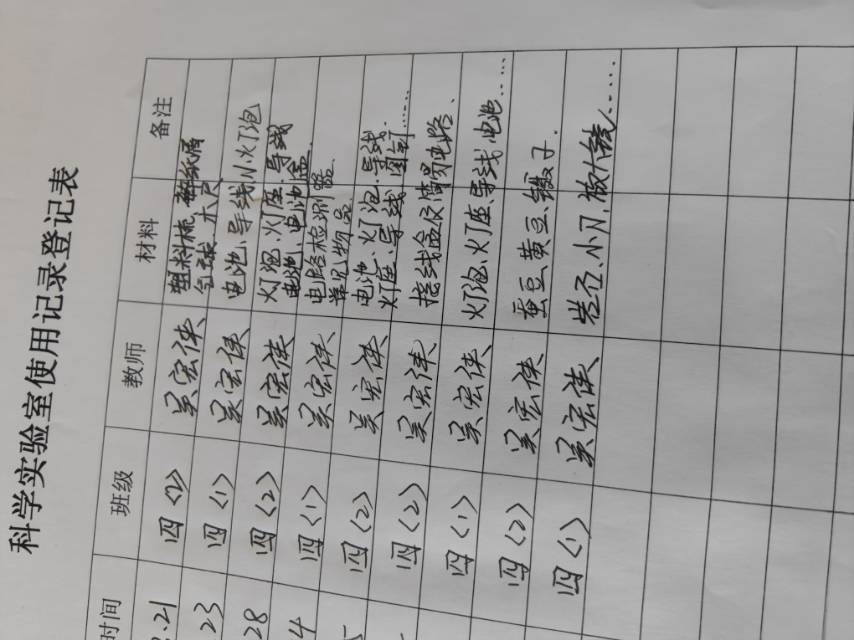 科学实验室使用记录登记表
时间 班级 教师 材料 备注
.21 四(2) 吴宏侠 塑料梳、碎纸屑
气球、木尺
23 四(1) 吴宏侠 电池、导线、小灯泡
28 四(2) 吴宏侠 灯泡、灯座、导线
电池、电池盒
4 四(1) 吴宏侠 电路检测器
常见物品
四(2) 吴宏侠 电池、灯泡、导线.
灯座、导线、图钉……
四(2) 吴宏侠 接线盒及简易电路、
四(1) 吴宏侠 灯泡、灯座、导线、电池……
四(2) 吴宏侠 蚕豆、黄豆、镊子.
四(1) 吴宏侠 岩石、小刀、放大镜……